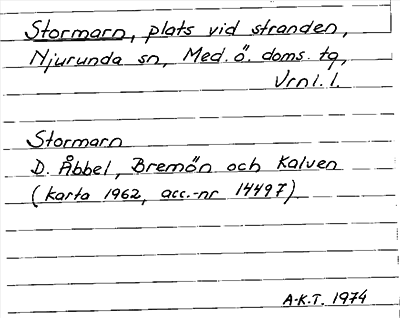 Stormarn, plats vid stranden,
Njurunda sn, Med. ö. doms. tg,
Vrnl. l.
Stormarn
D. Åbbel, Bremön och Kalven
(karta 1962, acc.-nr 14497)
A-K.T. 1974